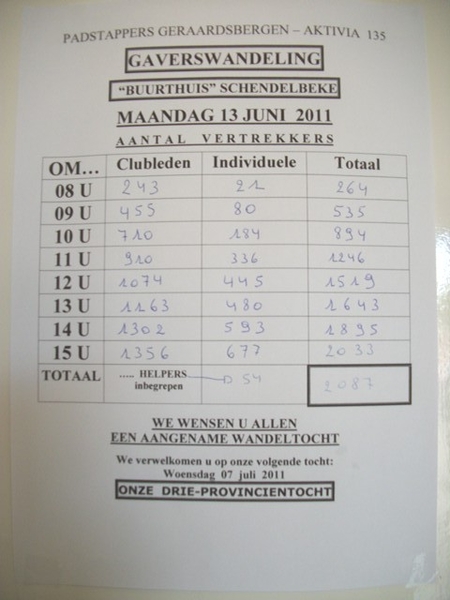 PADSTAPPERS GERAARDSBERGEN – AKTIVIA 135
GAVERSWANDELING
"BUURTHUIS" SCHENDELBEKE
MAANDAG 13 JUNI 2011
AANTAL VERTREKKERS
OM... Clubleden Individuele Totaal
08 U 243 21 264
09 U 455 80 535
10 U 710 184 894
11 U 910 336 1246
12 U 1074 445 1519
13 U 1163 480 1643
14 U 1302 593 1895
15 U 1356 677 2033
TOTAAL ..... HELPERS 54 2087
inbegrepen
WE WENSEN U ALLEN
EEN AANGENAME WANDELTOCHT
We verwelkomen u op onze volgende tocht:
Woensdag 07 juli 2011
ONZE DRIE-PROVINCIENTOCHT